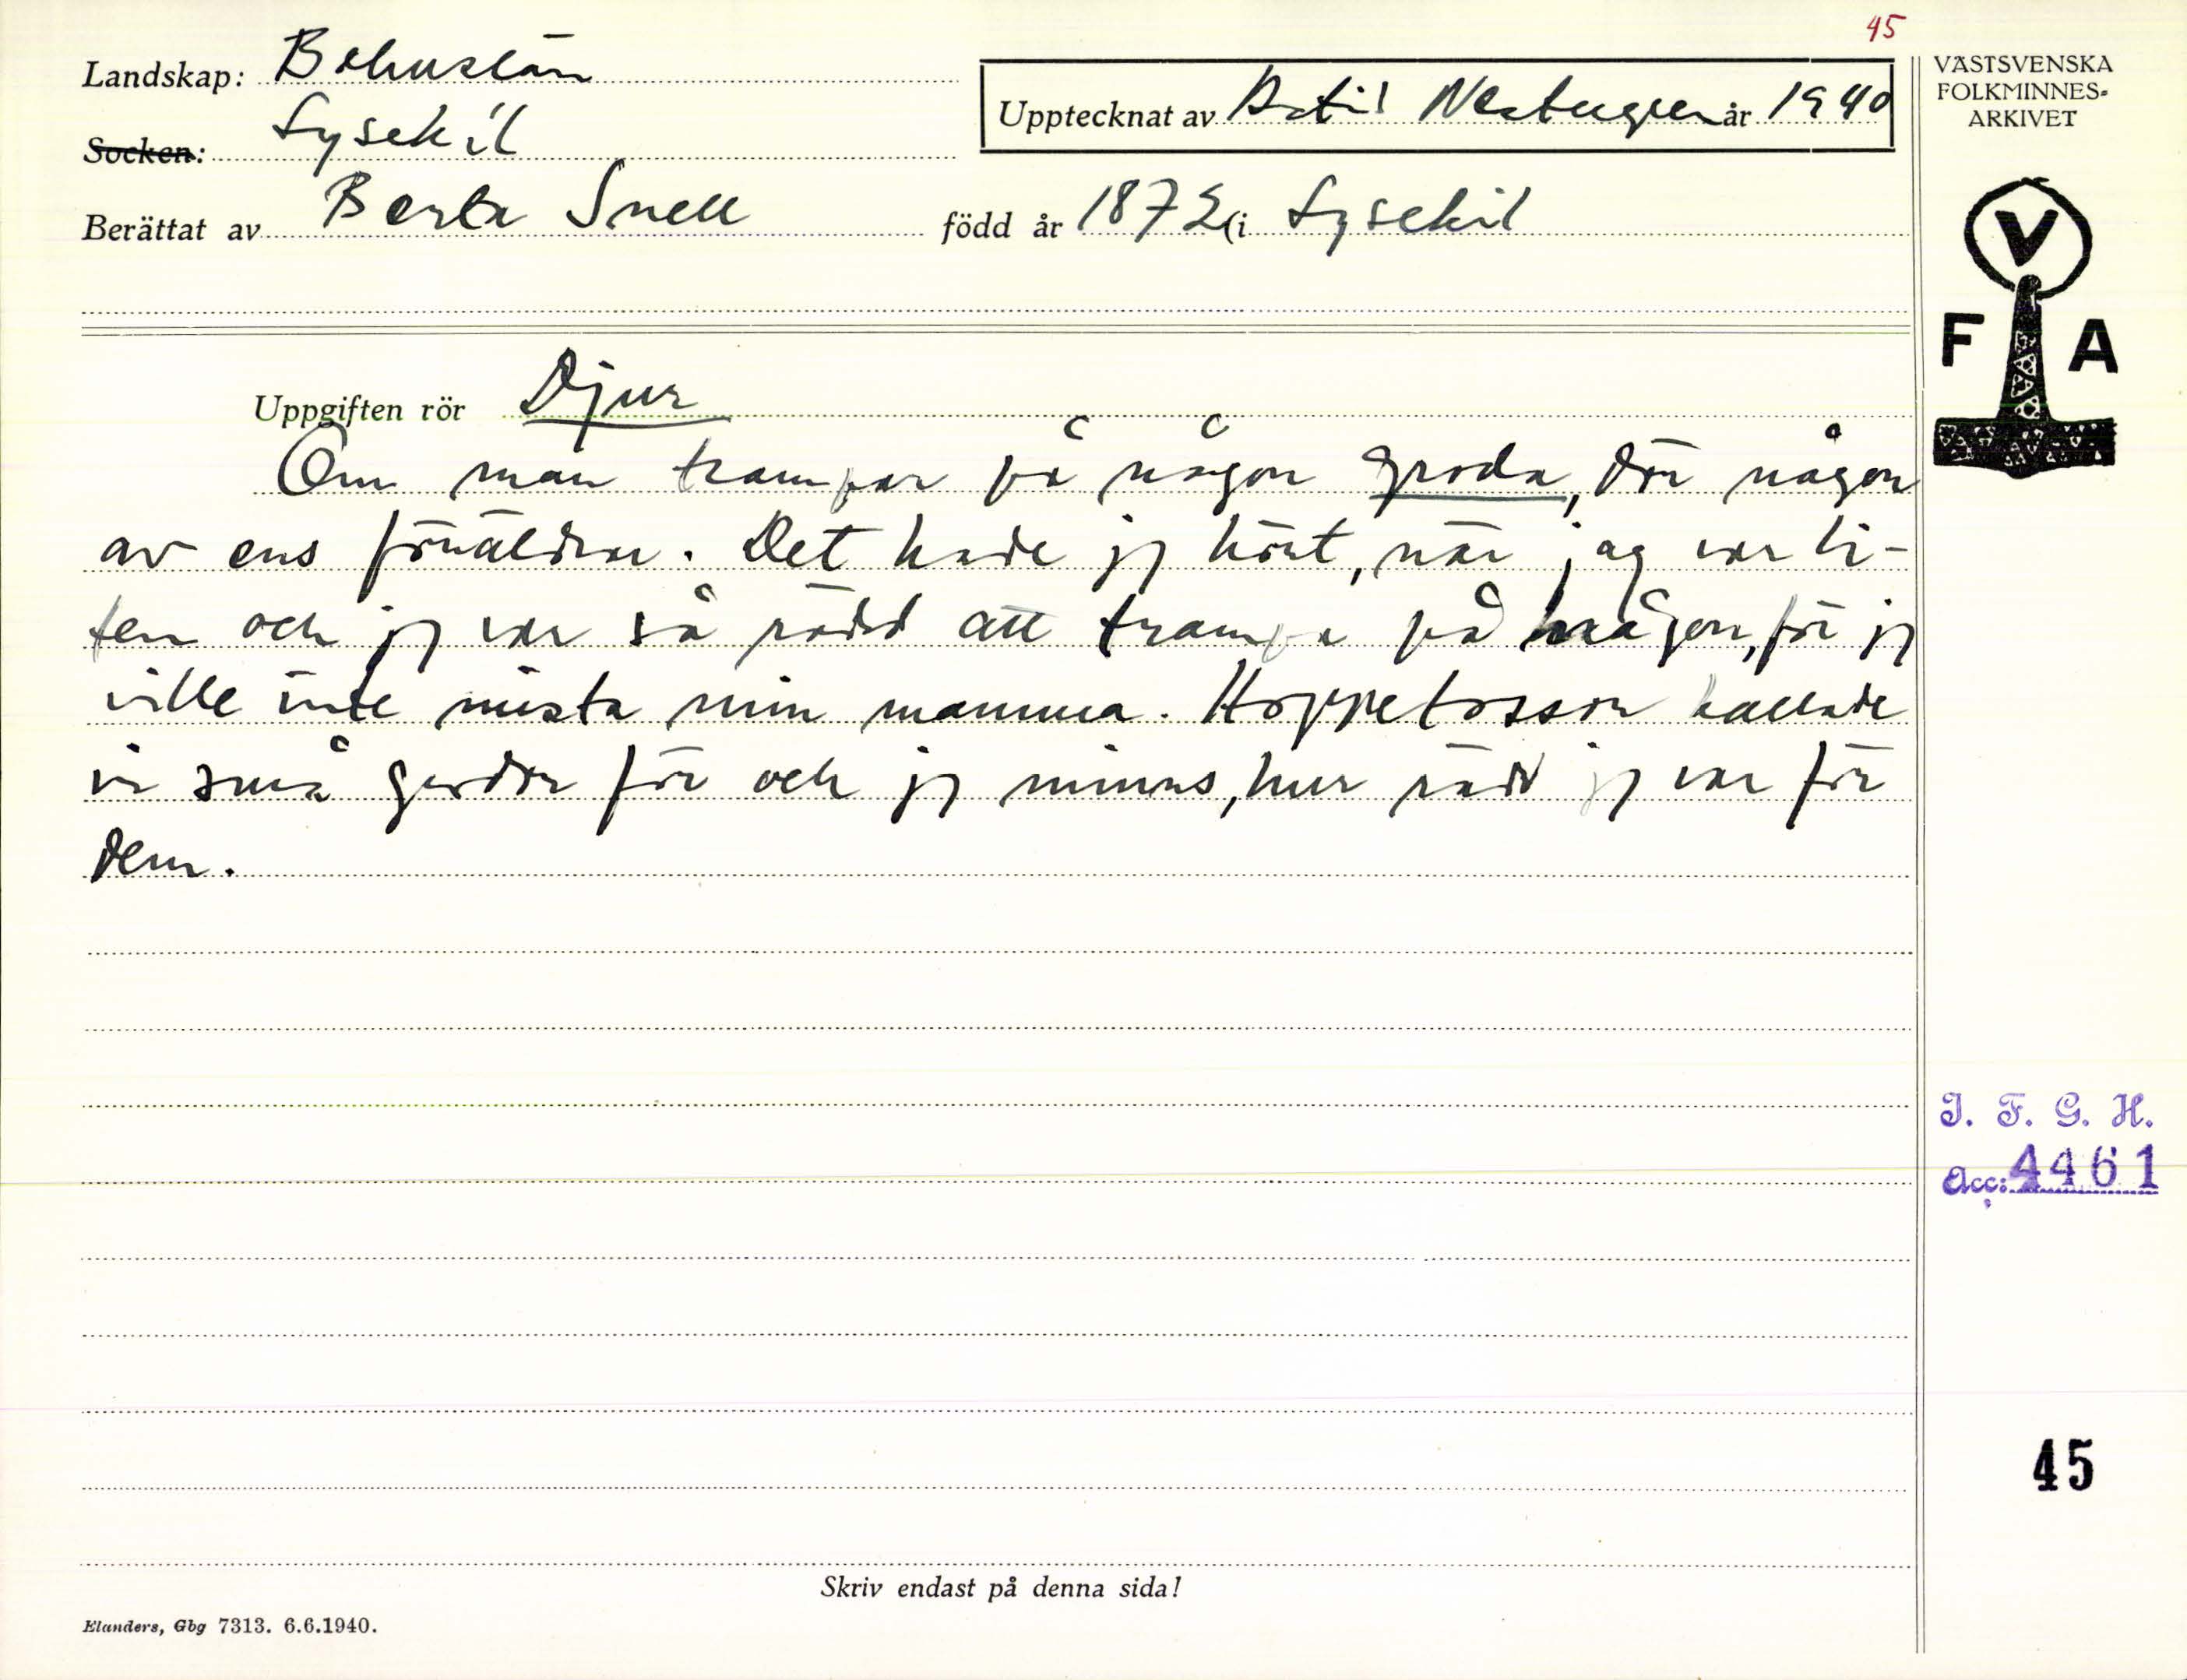 45
Landskap: Bohuslän
Socken: Lysekil
Upptecknat av år 1940
Berättat av Berta Snell född år 1872 i Lysekil
VÄSTSVENSKA
FOLKMINNES-
ARKIVET
V
F A
Uppgiften rör Djur
Om man trampar på någon groda, dör någon
av ens föräldrar. Det hade jg hört, när jag var li-
ten och jg var så rädd att trampa på någon, för jg
ville inte mista min mamma. Hoppetossor kallade
vi små grodor för och jg minns, hur rädd jg var för
dem.
I. F. G. H.
Acc: 4461
45
Skriv endast på denna sida!
Elanders, Gbg 7313. 6.6.1940.